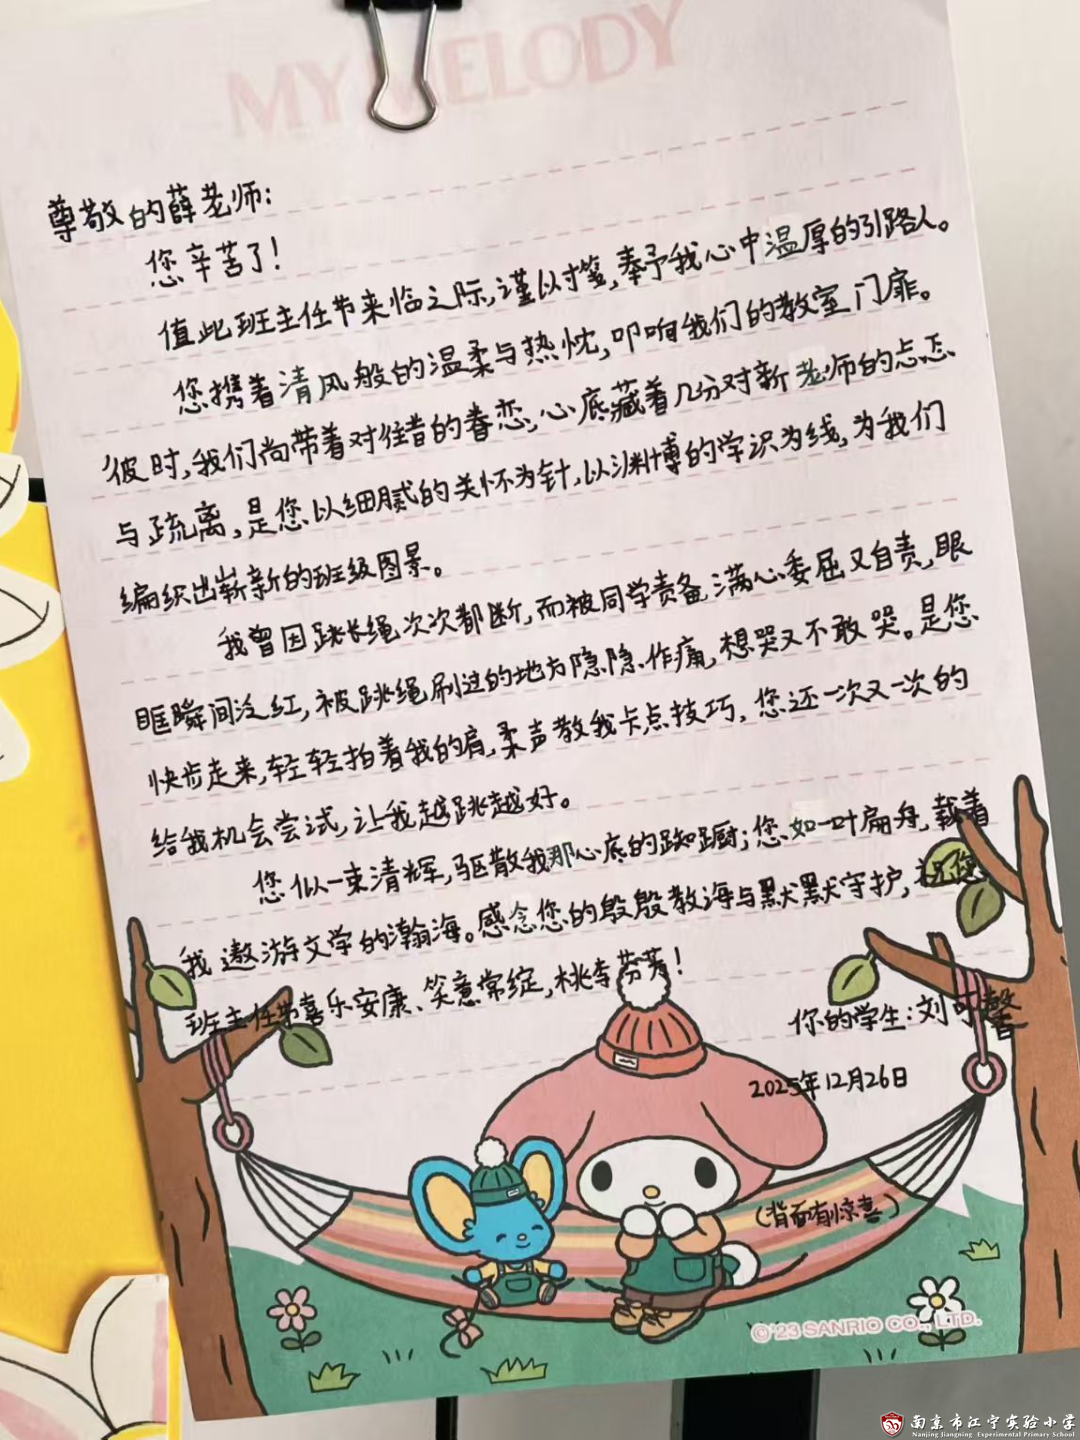 MY MELODY
尊敬的薛老师:
您辛苦了!
值此班主任节来临之际,谨以寸笺,奉予我心中温厚的引路人。
您携着清风般的温柔与热忱,叩响我们的教室门扉。
彼时,我们尚带着对往昔的眷恋,心底藏着几分对新老师的忐忑
与疏离,是您以细腻的关怀为针,以渊博的学识为线,为我们
编织出崭新的班级图景。
我曾因跳长绳次次都断,而被同学责备,满心委屈又自责,眼
眶瞬间泛红,被跳绳刷过的地方隐隐作痛,想哭又不敢哭。是您
快步走来,轻轻拍着我的肩,柔声教我卡点技巧,您还一次又一次的
给我机会尝试,让我越跳越好。
您似一束清辉,驱散我那心底的踟蹰;您如一叶扁舟,载着
我遨游文学的瀚海。感念您的殷殷教诲与默默守护,祝您
班主任节喜乐安康、笑意常绽,桃李芬芳!
你的学生:刘可馨
2025年12月26日
(背面有惊喜)
©'23 SANRIO CO., LTD.
南京市江宁实验小学
Nanjing Jiangning Experimental Primary School